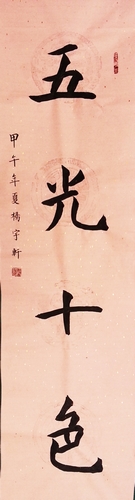 五光十色
甲午年夏楊宇軒